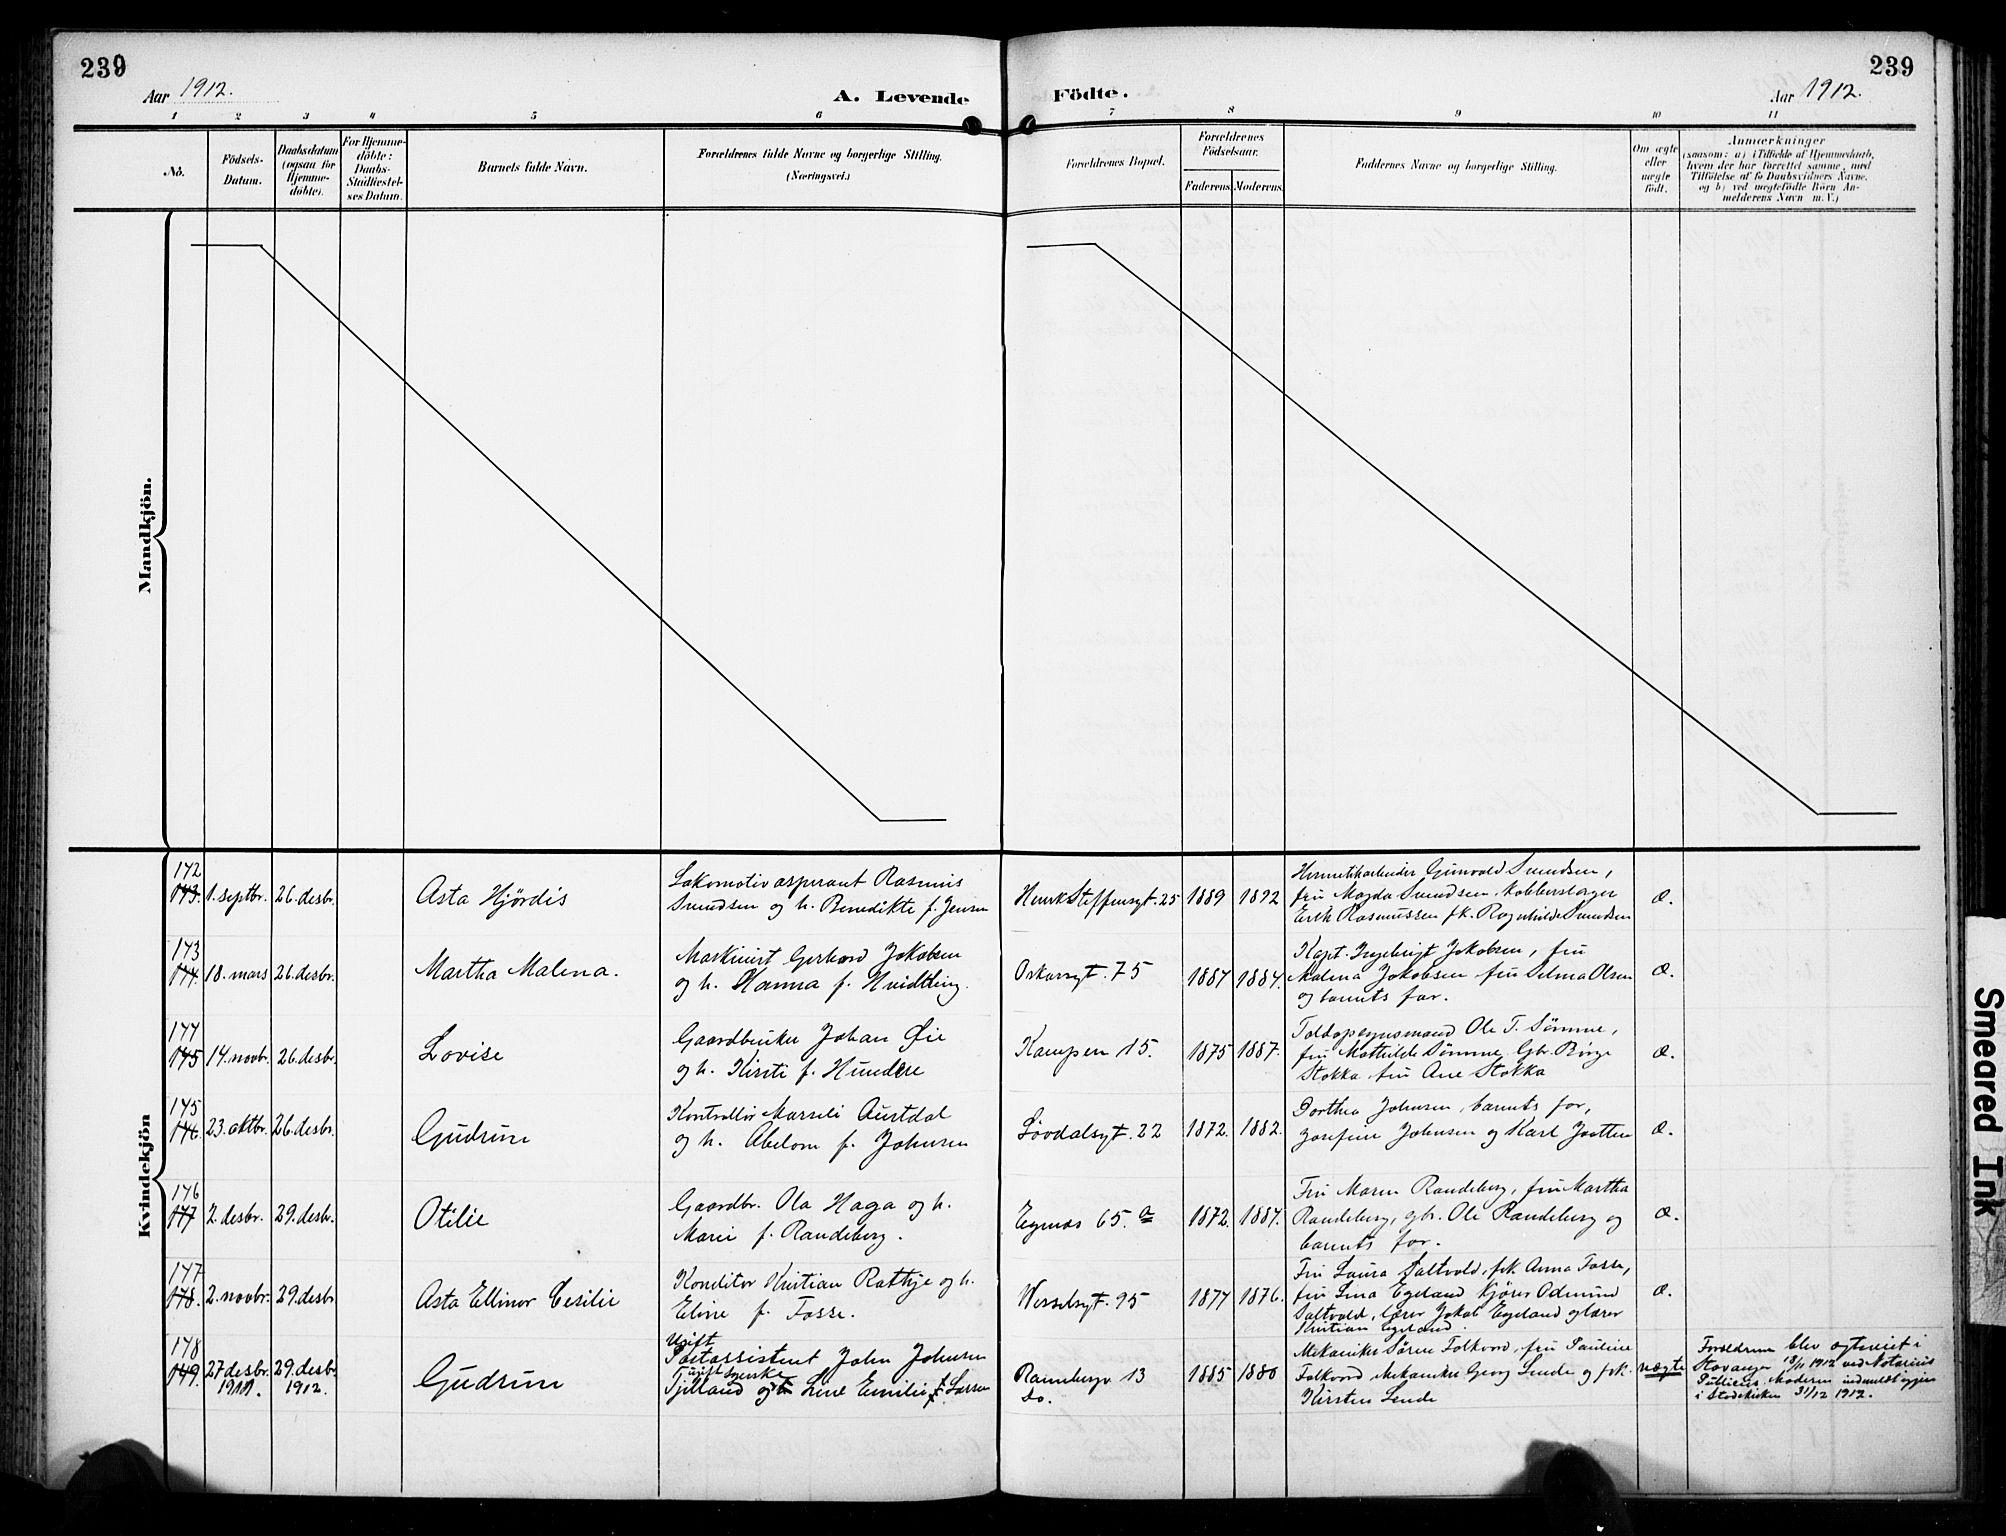 239
Aar 1912.
A. Levende
Födte.
Aar 1912.
239
1 2 3 4 5 6 7 8 9 10 11
No.
Födsels-
Datum.
Daabsdatum
(ogsaa for
Hjemme-
döbte).
For Hjemme-
döbte:
Daabs-
Stadfæstel-
ses Datum.
Barnets fulde Navn.
Forældrenes fulde Navne og borgerlige Stilling.
(Næringsvei.)
Forældrenes Bopæl.
Forældrenes
Födselsaar.
Faderens.
Moderens.
Faddernes Navne og borgerlige Stilling.
Om ægte
eller
uægte
födt.
Anmærkninger
(saasom: a) i Tilfælde af Hjemmedaab,
hvem der har forrettet samme, med
Tilföielse af to Daabsvidners Navne,
og b) ved uægtefödte Börn An-
melderens Navn m. V.)
Mandkjön.
Kvindekjön
172
173. 1. septbr. 26. desbr.
Asta Hjördis
Lokomotivaspirant Rasmus
Svendsen og h. Benedikte f. Jensen
Henrik Steffensgt. 25
1889 1892
Hermetikarbeider Gunvald Svendsen,
fru Magda Svendsen Kobberslager
Erik Rasmussen frk. Ragnhilde Svendsen
Æ.
173
174. 18. mars 26. desbr.
Martha Malena.
Maskinist Gerhard Jakobsen
og h. Hanna f. Hviddting.
Oskarsgt. 75
1887 1887.
Kapt. Ingebrigt Jakobsen, fru
Malena Jakobsen fru Selma Olsen
og barnets far.
Æ.
174
175 14. novbr. 26. desbr.
Lovise
Gaardbruker Johan Øie
og h. Kirsti f. Hundere
Kampen 15.
1875 1887.
Toldopsynsmand Ole T. Sömme,
fru Mathilde Sömme. Gbr. Börge
Stokka fru Ane Stokka
Æ.
175
176. 23. oktbr. 26. desbr.
Gudrun
Kontrollör Marseli Austdal
og h. Abelone f. Johnsen
Lövdalsgt. 22
1872. 1882.
Dorthea Johnsen, barnets far,
Josefine Johnsen og Karl
Æ.
176
177 2. desbr. 29. desbr.
Otilie
Gaardbr. Ola Haga og h.
Marie f. Randeberg.
Egenæs 65. a
1872. 1887.
Fru Maren Randeberg, fru Martha
Randeberg, gbr. Ole Randeberg og
barnets far.
Æ.
177
178. 2. novbr. 29. desbr
Asta Ellinor Cesilie
Konditor Kristian Rathje og h.
Eline f. Fosse.
Wesselsgt. 95
1877 1876.
Fru Laura Saltvold, frk. Anna Fosse,
fru Lina Egeland Kjörer Odmund
Saltvold, lærer Jakob Egeland og lærer
Kristian Egeland.
Æ.
178
179. 27 desbr. 1911. 29. desbr. 1912.
Gudrun
Ugift
Postassistent John Johnsen
ugift
Tjilland og Line Emilie f. Larsen
Ramsbergv 13
Do.
1885 1880
Mekaniker Sören Folkvord, fru Pauline
Folkvord Mekaniker Georg Lende og frk.
Kirsten Lende
uægte
Foreldrene blev egteviet i
Stavanger 18/11 1912 ved Notarius
Publicus. Moderen indmeldt
i Statskirken 31/12 1912.
Smeared Ink